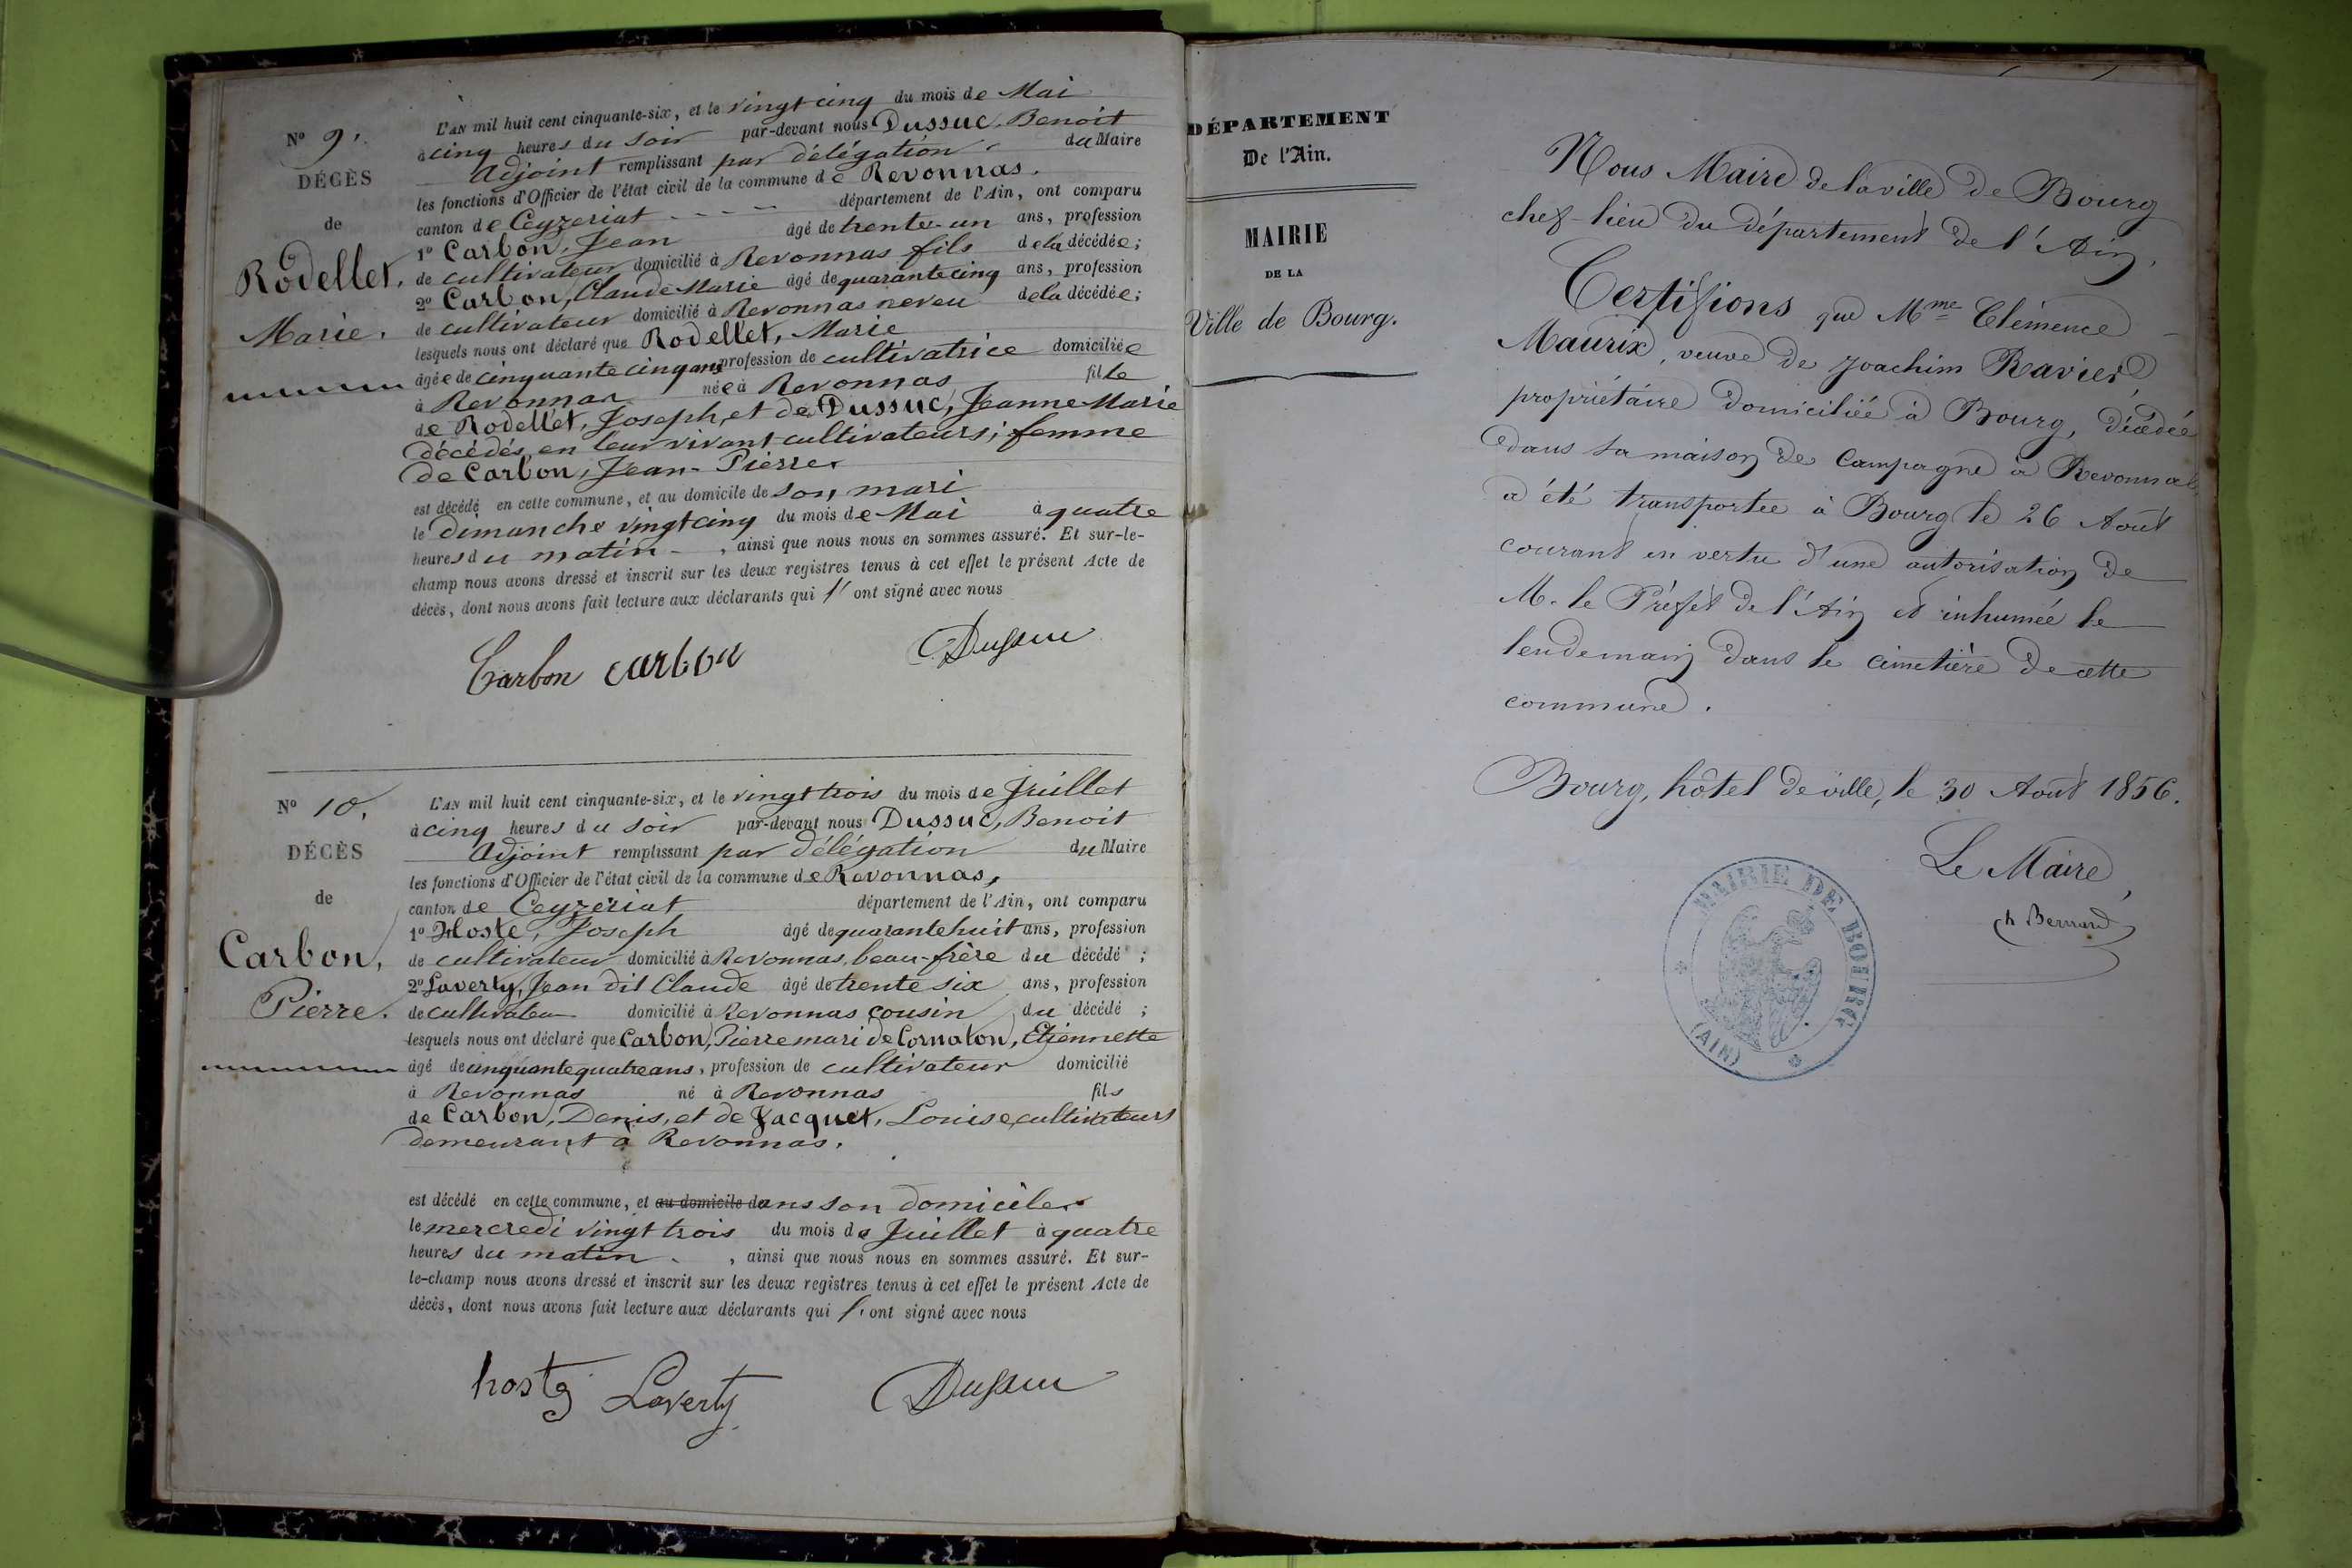 N° 9.
DÉCÈS
de
Rodellet,
Marie.
L'AN mil huit cent cinquante-six, et le vingt cinq du mois de Mai
à cinq heures du soir par-devant nous Dussuc, Benoit
Adjoint remplissant par délégation du Maire
les fonctions d'Officier de l'état civil de la commune de Revonnas.
canton de Ceyzeriat département de l'Ain, ont comparu
1° Carbon, Jean âgé de trente-un ans, profession
de cultivateur domicilié à Revonnas fils de la décédée;
2° Carbon, Claude Marie âgé de quarante cinq ans, profession
de cultivateur domicilié à Revonnas neveu de la décédée;
lesquels nous ont déclaré que Rodellet, Marie
âgée de cinquante cinq ans profession de cultivatrice domiciliée
à Revonnas née à Revonnas fille
de Rodellet, Joseph, et de Dussuc, Jeanne Marie
décédés, en leur vivant cultivateurs; femme
de Carbon, Jean-Pierre
est décédé en cette commune, et au domicile de son mari
le dimanche vingt cinq du mois de Mai à quatre
heures du matin - , ainsi que nous nous en sommes assuré. Et sur-le-
champ nous avons dressé et inscrit sur les deux registres tenus à cet effet le présent Acte de
décès, dont nous avons fait lecture aux déclarants qui l' ont signé avec nous
Carbon carbon Dussuc
N° 10.
DÉCÈS
de
Carbon,
Pierre.
L'AN mil huit cent cinquante-six, et le vingt trois du mois de Juillet
à cinq heures du soir par-devant nous Dussuc, Benoit
Adjoint remplissant par délégation du Maire
les fonctions d'Officier de l'état civil de la commune de Revonnas,
canton de Ceyzériat département de l'Ain, ont comparu
1° Hoste, Joseph âgé de quarante huit ans, profession
de cultivateur domicilié à Revonnas, beau-frère du décédé ;
2° Laverty, Jean dit Claude âgé de trente six ans, profession
de cultivateur domicilié à Revonnas cousin du décédé ;
lesquels nous ont déclaré que Carbon, Pierre mari de Cornaton, Etiennette
âgé de cinquante quatre ans, profession de cultivateur domicilié
à Revonnas né à Revonnas fils
de Carbon, Denis, et de Jacquet, Louise, cultivateurs
demeurant à Revonnas.
est décédé en cette commune, et au domicile dans son domicile
le mercredi vingt trois du mois de Juillet à quatre
heures du matin - , ainsi que nous nous en sommes assuré. Et sur-
le-champ nous avons dressé et inscrit sur les deux registres tenus à cet effet le présent Acte de
décès, dont nous avons fait lecture aux déclarants qui l' ont signé avec nous
Laverty Dussuc
DÉPARTEMENT
De l'Ain.
MAIRIE
DE LA
Ville de Bourg.
Nous Maire de la ville de Bourg
chef-lieu du département de l'Ain,
Certifions que Mme Clémence
Maurix, veuve de Joachim Ravier
propriétaire domiciliée à Bourg, décédée
dans sa maison de Campagne à Revonnas
a été transportée à Bourg le 26 Août
courant en vertu d'une autorisation de
M. le Préfet de l'Ain et inhumée le
lendemain dans le cimetière de cette
commune.
Bourg, hôtel de ville, le 30 Août 1856.
Le Maire,
Bernard
MAIRIE DE BOURG
(AIN)